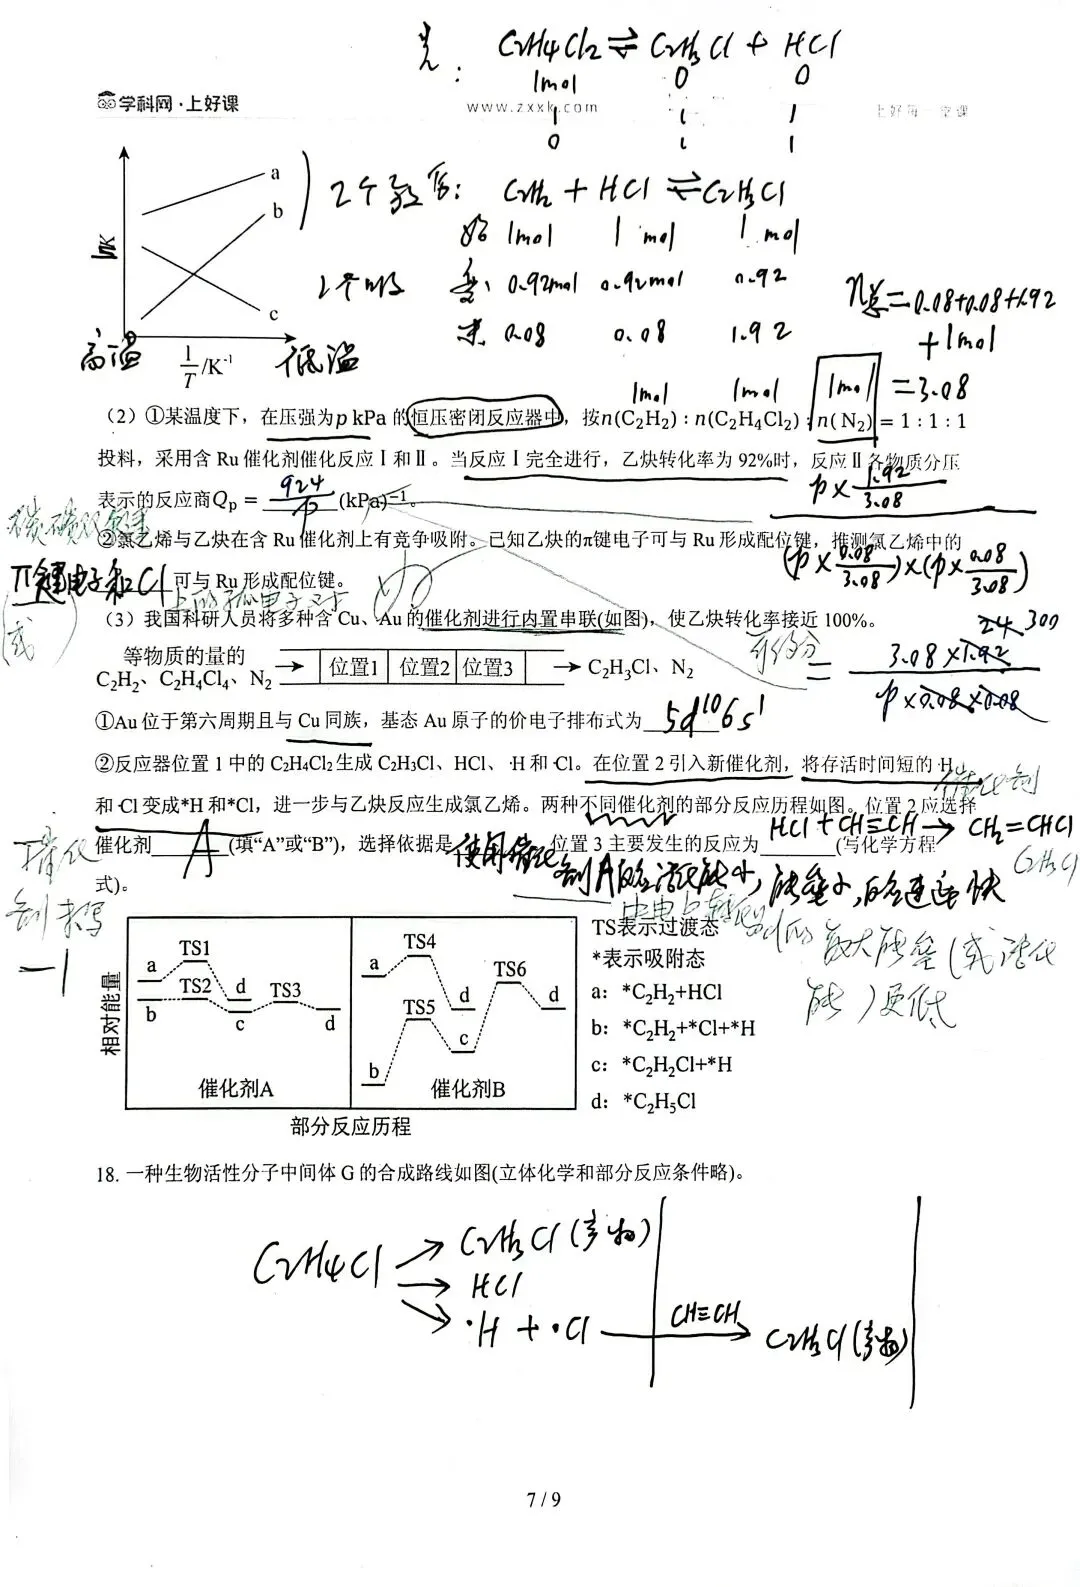 先: C2H4Cl2 ⇌ C2H3Cl + HCl
1mol 0 0
1 1 1
0 1 1
学科网·上好课
www.zxxk.com
上好每一堂课
a
b
c
lnK
1/T /K⁻¹
高温
低温
2个放
1个吸
后: C2H2 + HCl ⇌ C2H3Cl
始 1mol 1mol 1mol
变 0.92mol 0.92mol 0.92
末 0.08 0.08 1.92
n总=0.08+0.08+1.92
+1mol
=3.08
1mol 1mol 1mol
(2)①某温度下，在压强为p kPa 的恒压密闭反应器中，按n(C₂H₂) : n(C₂H₄Cl₂) : n(N₂) = 1 : 1 : 1
投料，采用含 Ru 催化剂催化反应Ⅰ和Ⅱ。当反应Ⅰ完全进行，乙炔转化率为 92%时，反应Ⅱ各物质分压
表示的反应商Qp = 924/p (kPa)⁻¹。
p× 1.92/3.08
(p× 0.08/3.08)×(p× 0.08/3.08)
= 3.08×1.92 / p×0.08×0.08
24 300
碳碳双键
②氯乙烯与乙炔在含 Ru 催化剂上有竞争吸附。已知乙炔的π键电子可与 Ru 形成配位键，推测氯乙烯中的
π键电子和Cl 可与 Ru 形成配位键。
上的孤电子对
(或)
(3)我国科研人员将多种含 Cu、Au 的催化剂进行内置串联(如图)，使乙炔转化率接近 100%。
等物质的量的
C₂H₂、C₂H₄Cl₄、N₂ → 位置1 位置2 位置3 → C₂H₃Cl、N₂
①Au 位于第六周期且与 Cu 同族，基态 Au 原子的价电子排布式为 5d¹⁰6s¹
②反应器位置 1 中的 C₂H₄Cl₂ 生成 C₂H₃Cl、HCl、·H 和·Cl。在位置 2 引入新催化剂，将存活时间短的·H
和·Cl 变成*H 和*Cl，进一步与乙炔反应生成氯乙烯。两种不同催化剂的部分反应历程如图。位置 2 应选择
催化剂 A (填“A”或“B”)，选择依据是 位置 3 主要发生的反应为 (写化学方程
式)。
催化剂
HCl + CH≡CH → CH2=CHCl
C2H3Cl
使用催化剂A的活化能小，能垒小，的速率快
最大能垒(或活化
能)更低
催化
剂未写
-1
相对能量
a TS1 d
b TS2 c TS3 d
催化剂A
a TS4 d
b TS5 c TS6 d
催化剂B
部分反应历程
TS表示过渡态
*表示吸附态
a: *C₂H₂+HCl
b: *C₂H₂+*Cl+*H
c: *C₂H₂Cl+*H
d: *C₂H₅Cl
18. 一种生物活性分子中间体 G 的合成路线如图(立体化学和部分反应条件略)。
C2H4Cl → C2H3Cl (产物)
→ HCl
→ ·H + ·Cl
CH≡CH
C2H3Cl (产物)
7 / 9